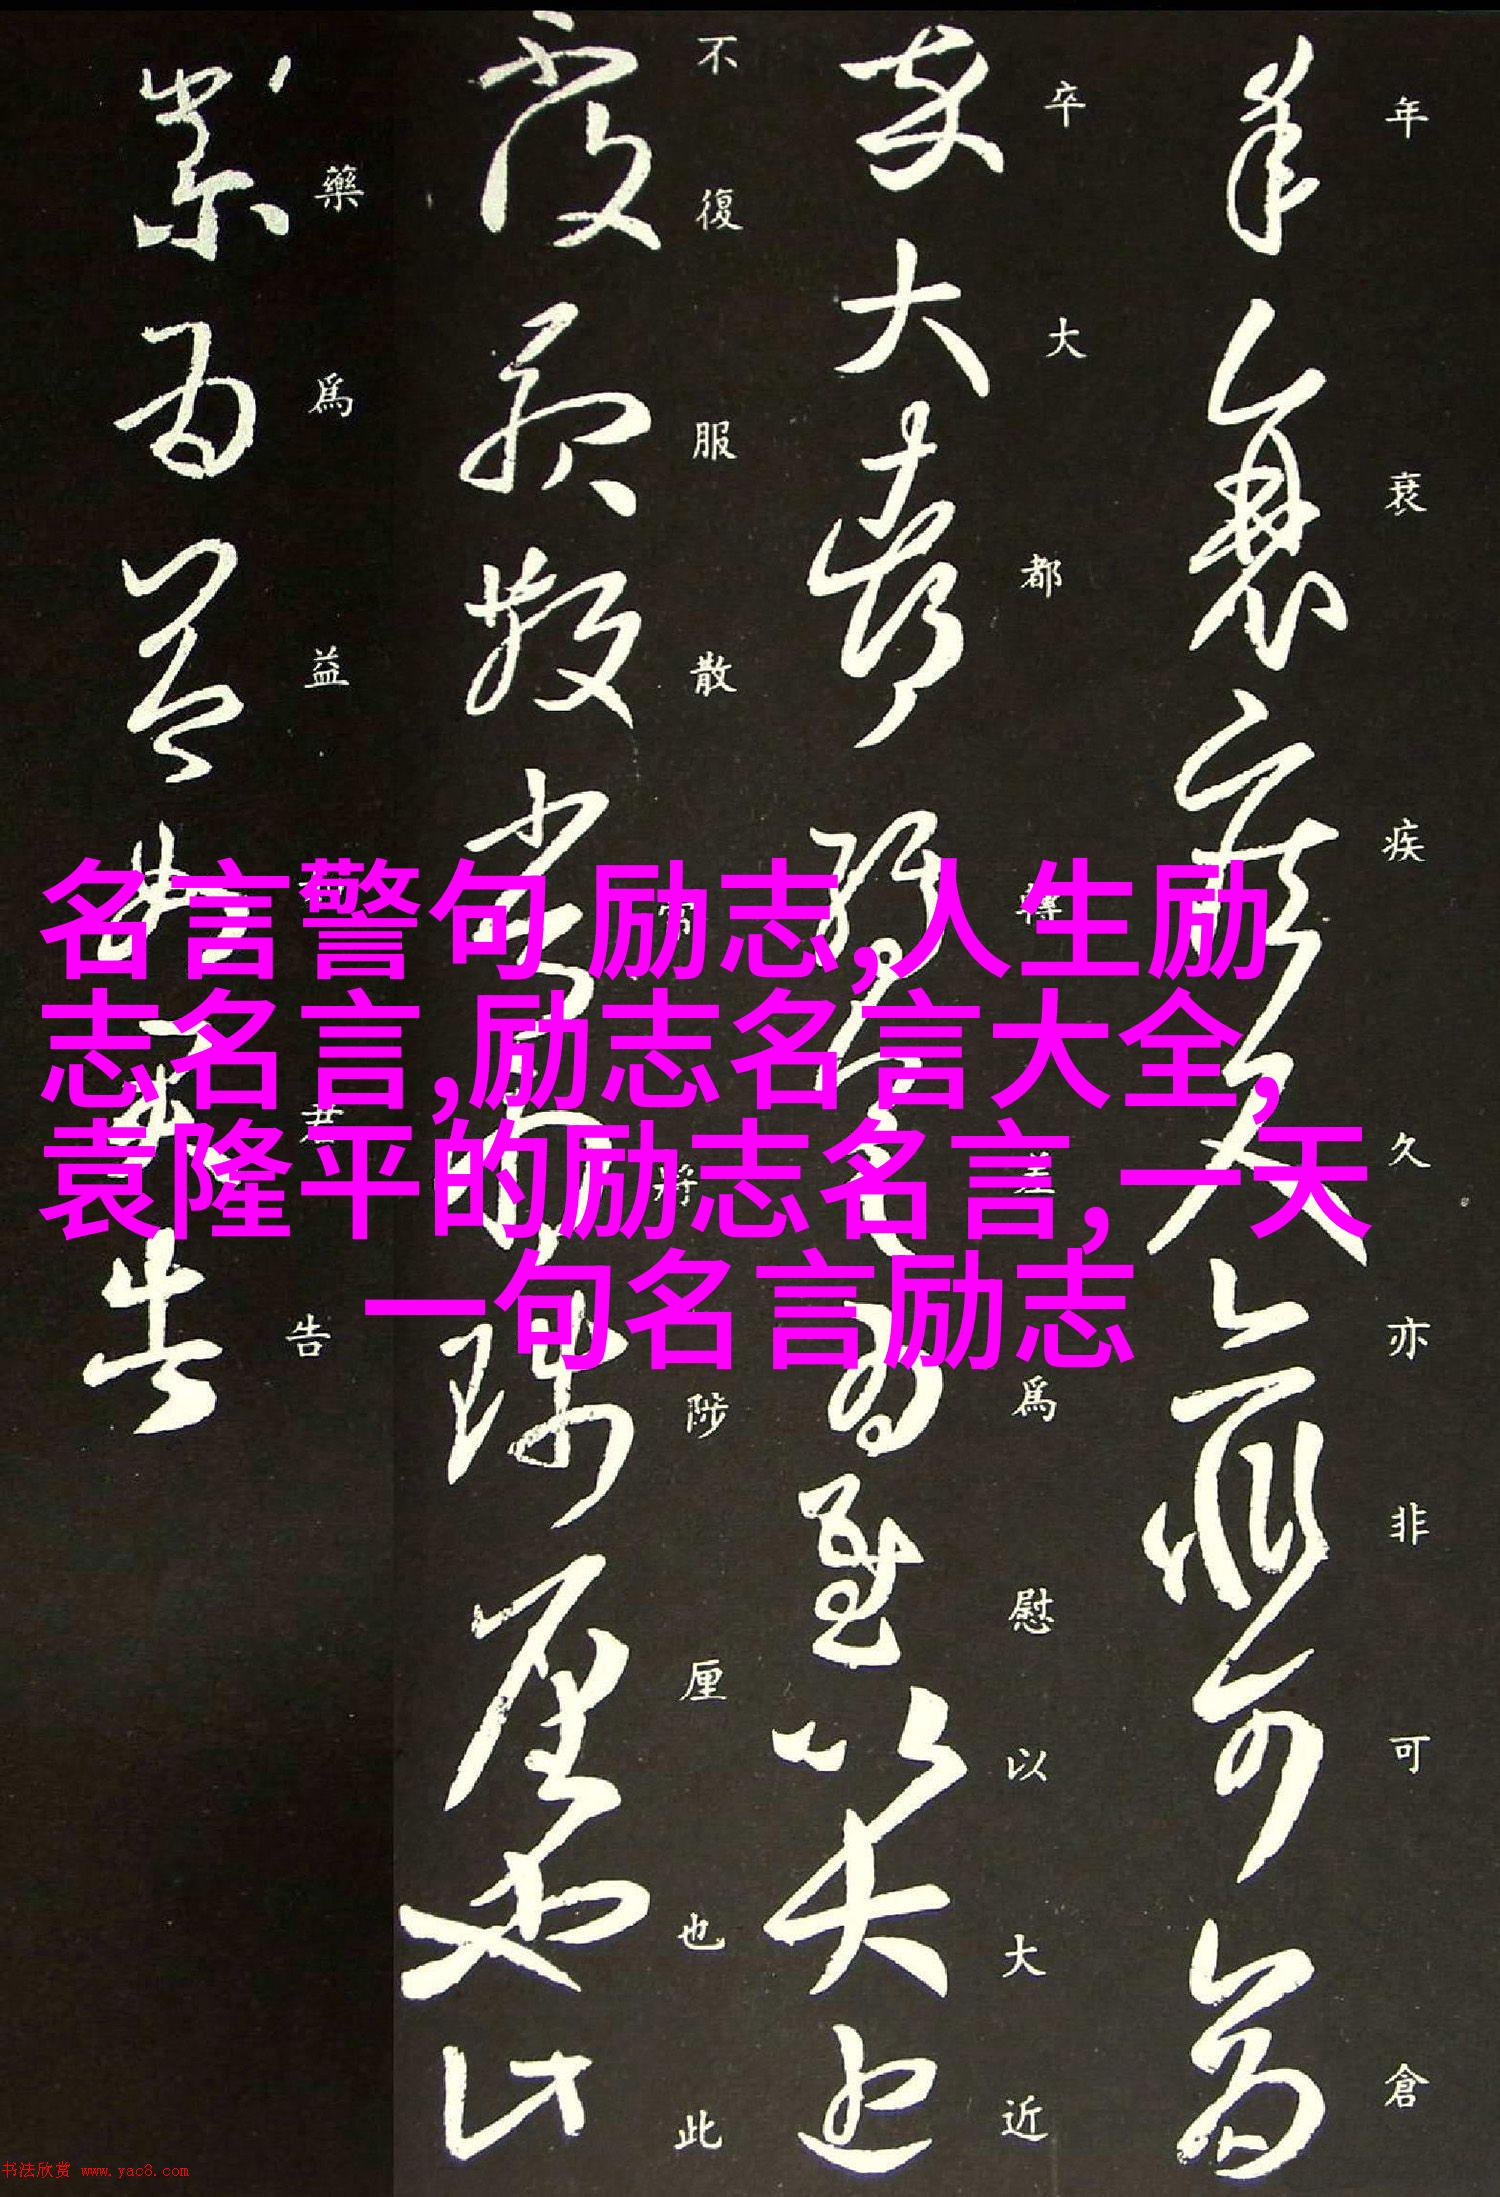 年衰疾久亦非可倉
卒大都轉差為慰以大近
不復服散常將陟厘也此
藥為益君告
名言警句 励志,人生励
志名言,励志名言大全,
袁隆平的励志名言,一天
一句名言励志
书法欣赏 www.yac8.com